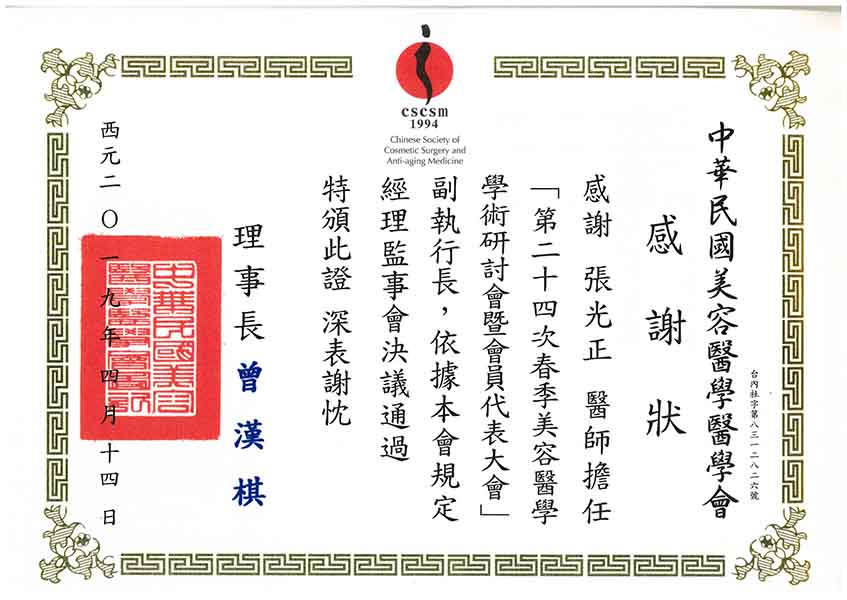 cscsm
1994
Chinese Society of
Cosmetic Surgery and
Anti-aging Medicine
中華民國美容醫學醫學會
台內社字第八三一二八二六號
感謝狀
感謝 張光正 醫師擔任
「第二十四次春季美容醫學
學術研討會暨會員代表大會」
副執行長，依據本會規定
經理監事會決議通過
特頒此證 深表謝忱
理事長 曾漢棋
西元二〇一九年四月十四日